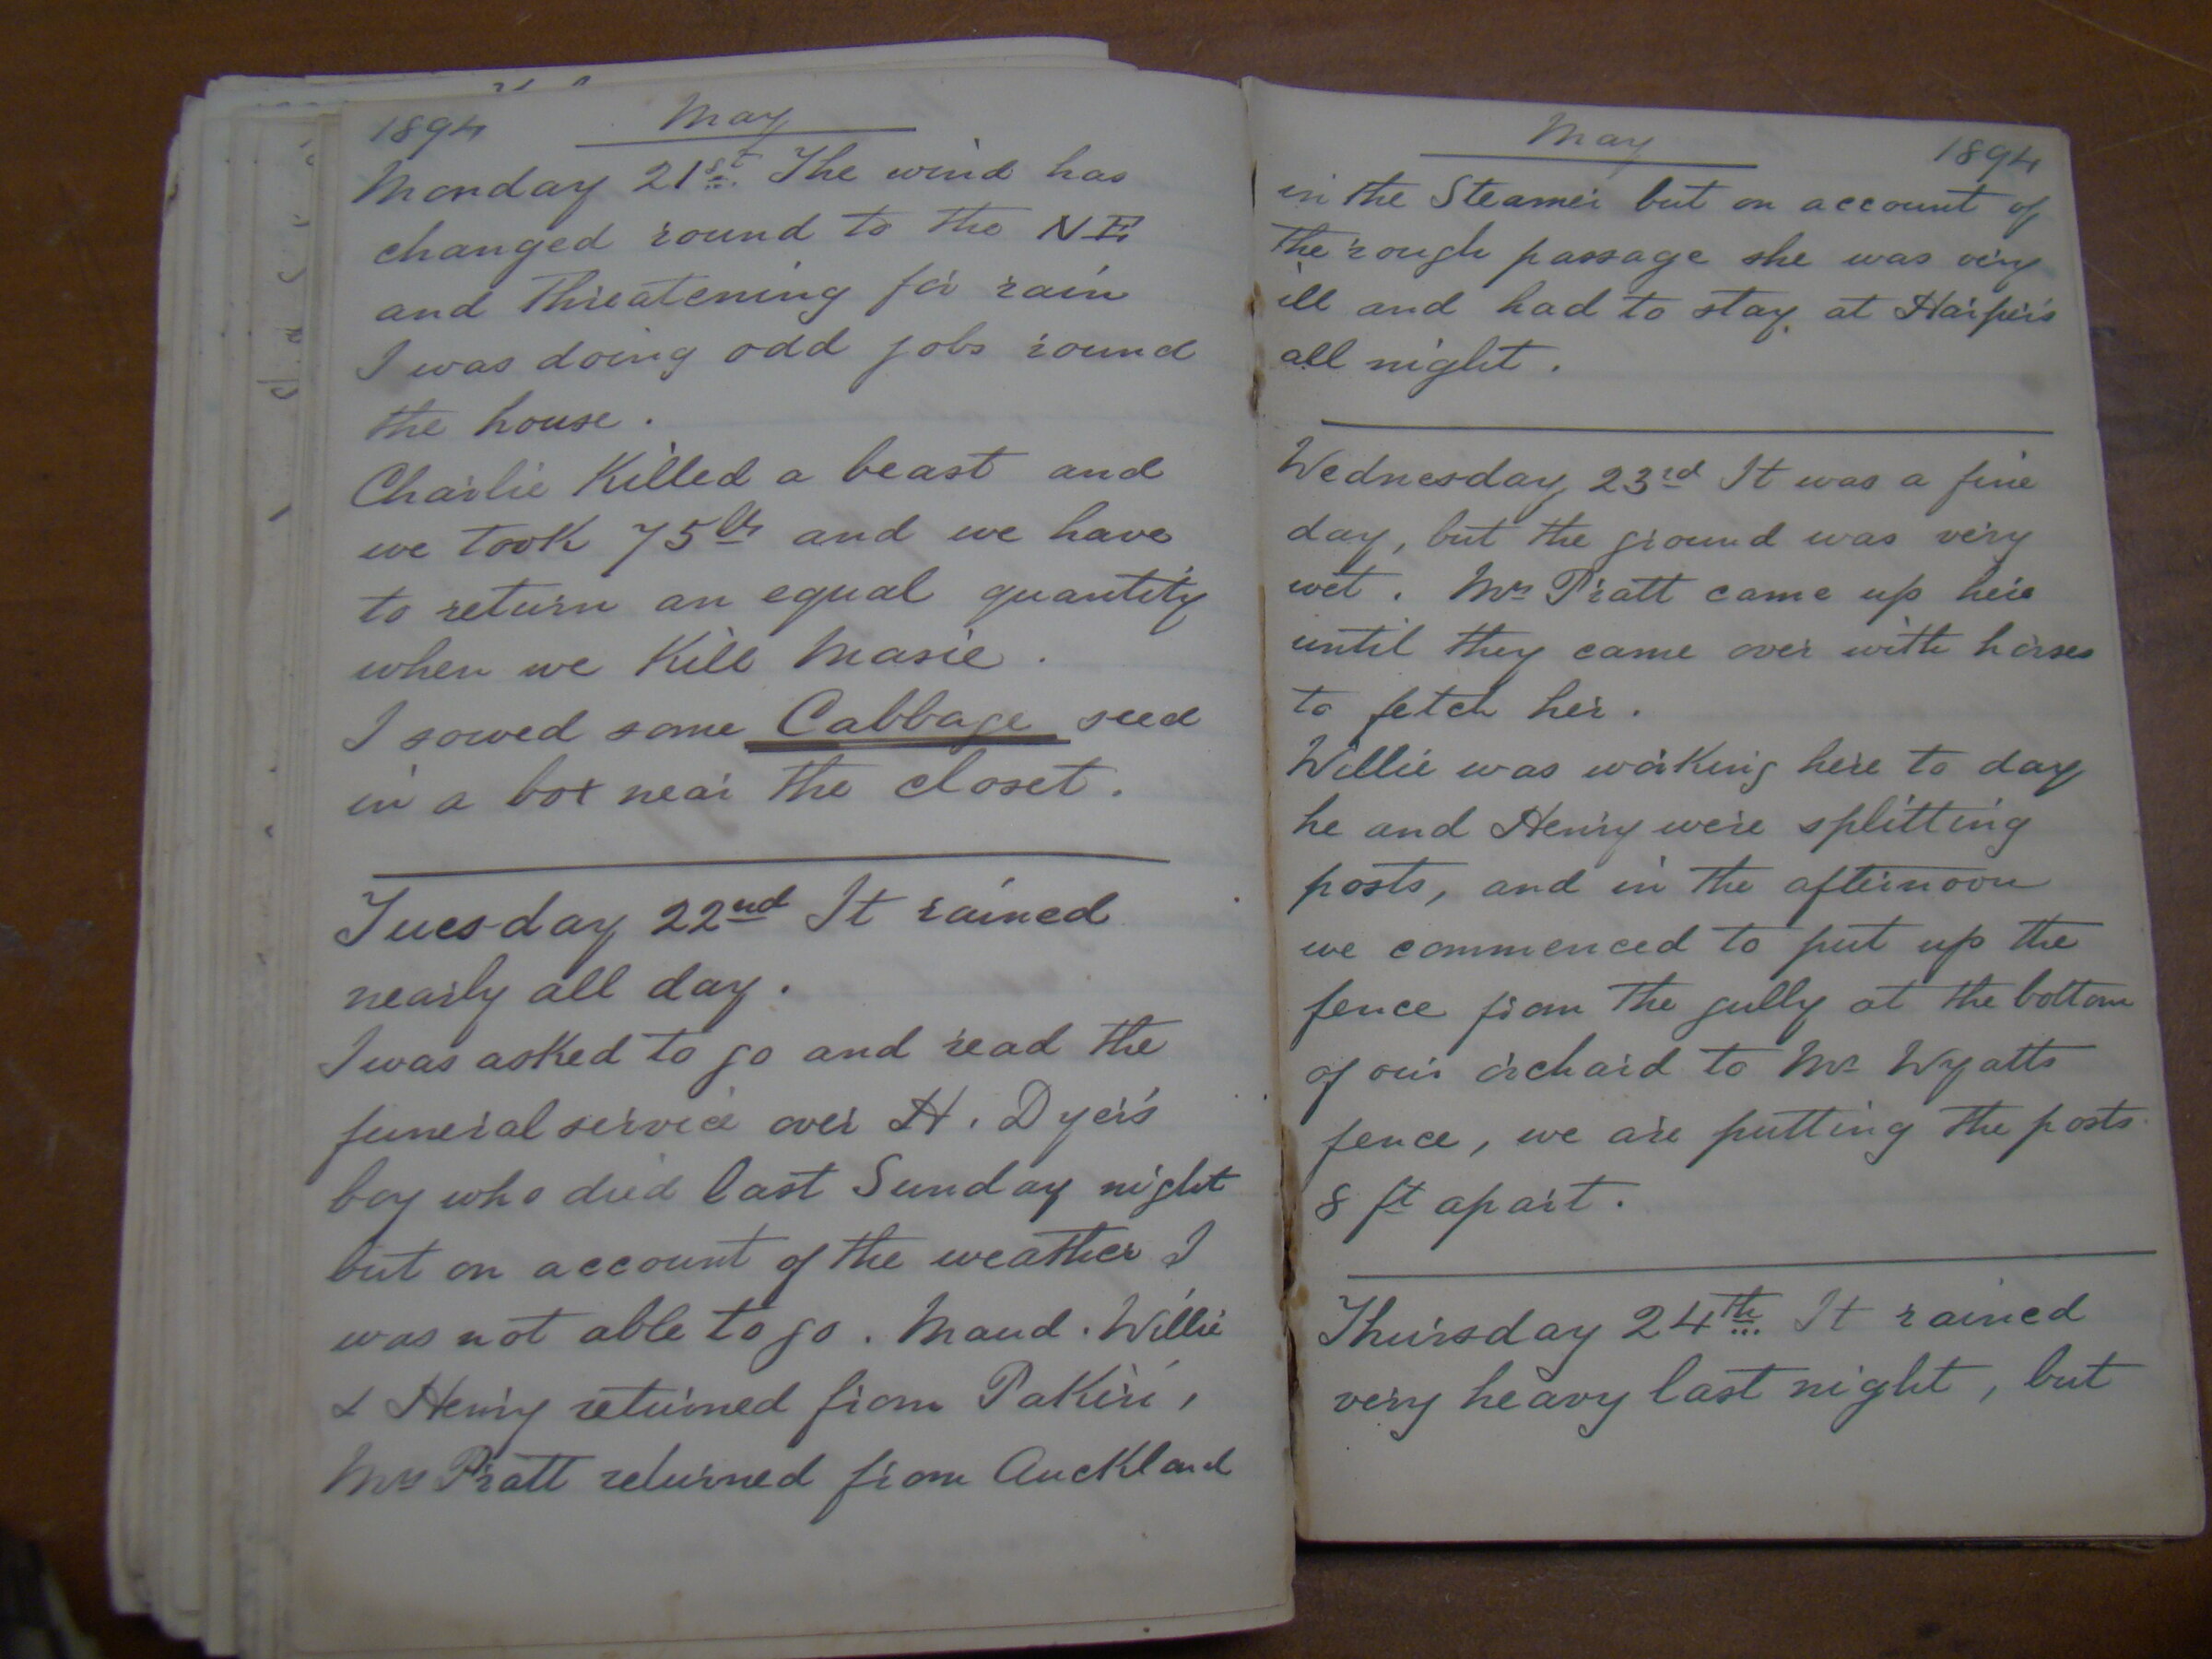 1894 May
Monday 21st. The wind has
changed round to the NE.
and threatening for rain
I was doing odd jobs round
the house.
Charlie Killed a beast and
we took 75 lbs and we have
to return an equal quantity
when we Kill Masie.
I sowed some Cabbage seed
in a box near the closet.
Tuesday 22nd It rained
nearly all day.
I was asked to go and read the
funeral service over H. Dyer's
boy who died last Sunday night
but on account of the weather I
was not able to go. Maud. Willie
& Henry returned from Pakiri,
Mrs Pratt returned from Auckland
May 1894
in the Steamer but on account of
the rough passage she was very
ill and had to stay at Harper's
all night.
Wednesday 23rd It was a fine
day, but the ground was very
wet. Mrs Pratt came up here
until they came over with horses
to fetch her.
Willie was working here to day
he and Henry were splitting
posts, and in the afternoon
we commenced to put up the
fence from the gully at the bottom
of our orchard to Mr Wyatts
fence, we are putting the posts
8 ft apart.
Thursday 24th. It rained
very heavy last night, but